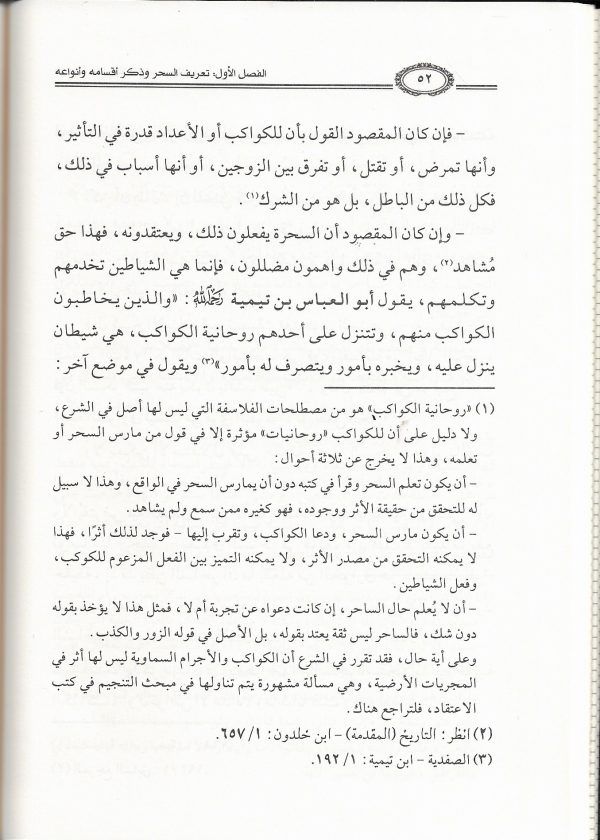 ٥٢
الفصل الأول: تعريف السحر وذكر أقسامه وأنواعه
- فإن كان المقصود القول بأن للكواكب أو الأعداد قدرة في التأثير،
وأنها تمرض، أو تقتل، أو تفرق بين الزوجين، أو أنها أسباب في ذلك،
فكل ذلك من الباطل، بل هو من الشرك(١).
- وإن كان المقصود أن السحرة يفعلون ذلك، ويعتقدونه، فهذا حق
مُشاهد(٢)، وهم في ذلك واهمون مضللون، فإنما هي الشياطين تخدمهم
وتكلمهم، يقول أبو العباس بن تيمية رحمه الله: «والذين يخاطبون
الكواكب منهم، وتتنزل على أحدهم روحانية الكواكب، هي شيطان
ينزل عليه، ويخبره بأمور ويتصرف له بأمور»(٣) ويقول في موضع آخر:
(١) «روحانية الكواكب» هو من مصطلحات الفلاسفة التي ليس لها أصل في الشرع،
ولا دليل على أن للكواكب «روحانيات» مؤثرة إلا في قول من مارس السحر أو
تعلمه، وهذا لا يخرج عن ثلاثة أحوال:
- أن يكون تعلم السحر وقرأ في كتبه دون أن يمارس السحر في الواقع، وهذا لا سبيل
له للتحقق من حقيقة الأثر ووجوده، فهو كغيره ممن سمع ولم يشاهد.
- أن يكون مارس السحر، ودعا الكواكب، وتقرب إليها - فوجد لذلك أثرًا، فهذا
لا يمكنه التحقق من مصدر الأثر، ولا يمكنه التميز بين الفعل المزعوم للكوكب،
وفعل الشياطين.
- أن لا يُعلم حال الساحر، إن كانت دعواه عن تجربة أم لا، فمثل هذا لا يؤخذ بقوله
دون شك، فالساحر ليس ثقة يعتد بقوله، بل الأصل في قوله الزور والكذب.
وعلى أية حال، فقد تقرر في الشرع أن الكواكب والأجرام السماوية ليس لها أثر في
المجريات الأرضية، وهي مسألة مشهورة يتم تناولها في مبحث التنجيم في كتب
الاعتقاد، فلتراجع هناك.
(٢) انظر: التاريخ (المقدمة) - ابن خلدون: ١/ ٦٥٧.
(٣) الصفدية - ابن تيمية: ١/ ١٩٢.